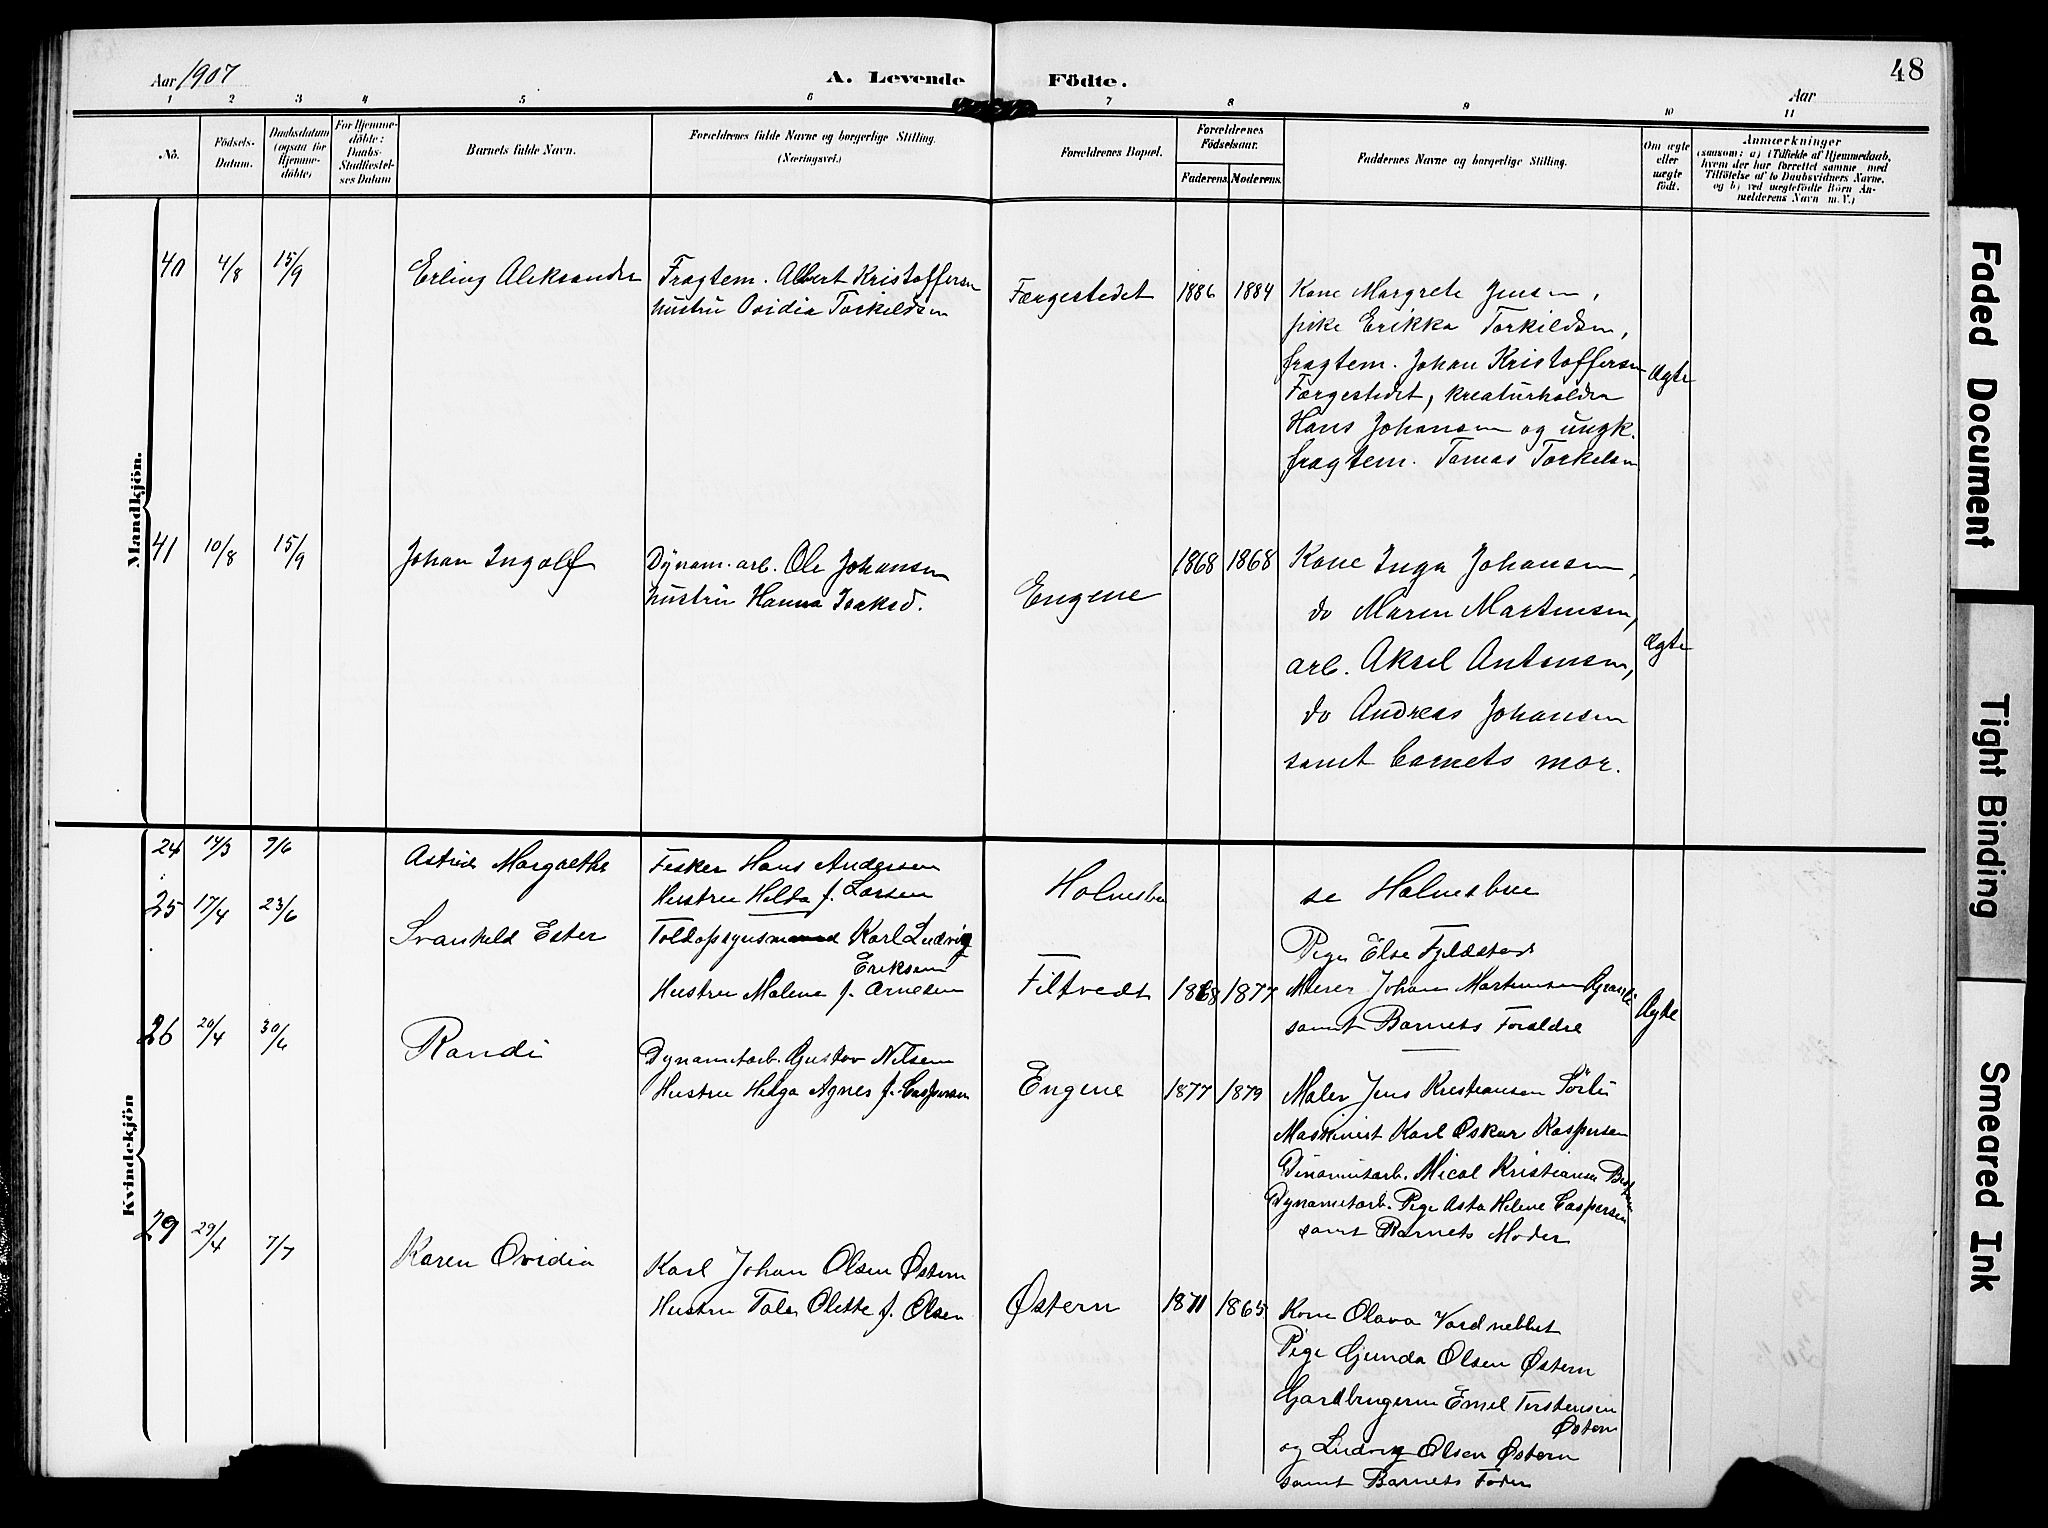 Aar 1907
A. Levende Födte.
48
Aar
1 2 3 4 5 6 7 8 9 10 11
No.
Födsels-
Datum.
Daabsdatum
(ogsaa for
Hjemme-
döbte)
For Hjemme-
döbte:
Daabs-
Stadfæstel-
ses Datum
Barnets fulde Navn.
Forældrenes fulde Navne og borgerlige Stilling.
(Næringsvei.)
Forældrenes Bopæl.
Forældrenes
Födselsaar.
Faderens. Moderens.
Faddernes Navne og borgerlige Stilling.
Om ægte
eller
uægte
födt.
Anmærkninger
(saasom: a) i Tilfælde af Hjemmedaab,
hvem der har forrettet samme med
Tilföielse af to Daabsvidners Navne,
og b) ved uægtefödte Börn An-
melderens Navn m. V.)
Mandkjön.
40 4/8 15/9
Erling Aleksander
Fragtem. Albert Kristoffersen
hustru Ovidia Torkildsen
Færgestedet 1886 1884
Kone Margrete Jensen,
pike Erikka Torkildsen,
fragtem. Johan Kristoffersen
Færgestedet, kreaturholder
Hans Johansen og ungk.
fragtem. Tomas Torkelsen
Ægte
41 10/8 15/9
Johan Ingolf
Dynam. arb. Ole Johansen
hustru Hanna Isaksd.
Engene 1868 1868
Kone Inga Johansen,
do Maren Martinsen,
arb. Aksel Antonsen,
do Andreas Johansen
samt barnets mor.
Ægte
Kvindekjön
24 14/3 9/6
Astrid Margrethe
Fisker Hans Andersen
Hustru Hilda f. Larsen
Holmsbu
se Holmsbu
25 17/4 23/6
Svanhild Ester
Toldopsynsmand Karl Ludvig
Eriksen
Hustru Malene f. Arnesen
Filtvedt 1868 1877
Pige Else Fjeldstad
Murer Johan Martinsen
samt Barnets Forældre
Ægte
26 20/4 30/6
Randi
Dynamitarb. Gustav Nilsen
Hustru Helga Agnes f. Caspersen
Engene 1877 1879
Maler Jens Kristiansen Sörli
Maskinist Karl Oskar Kaspersen
Dinamitarb. Mical Kristiansen
Dynamitarb. Pige Asta Helene Caspersen
samt Barnets Moder
29 29/4 7/7
Karen Ovidia
Karl Johan Olsen Østern
Hustru Tale Olette f. Olsen
Østern 1871 1865
Kone Olava Vardnebbet
Pige Gjunda Olsen Østern
Gardbrugerne Emil Torstensen
Østern
og Ludvig Olsen Østern
samt Barnets Fader
Faded Document
Tight Binding
Smeared Ink